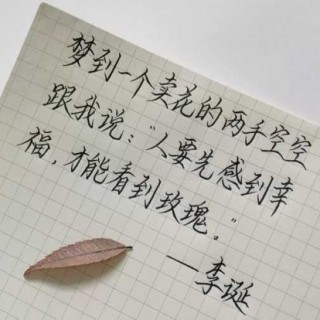 梦到一个卖花的两手空空
跟我说："人要先感到幸
福，才能看到玫瑰。"
—李诞